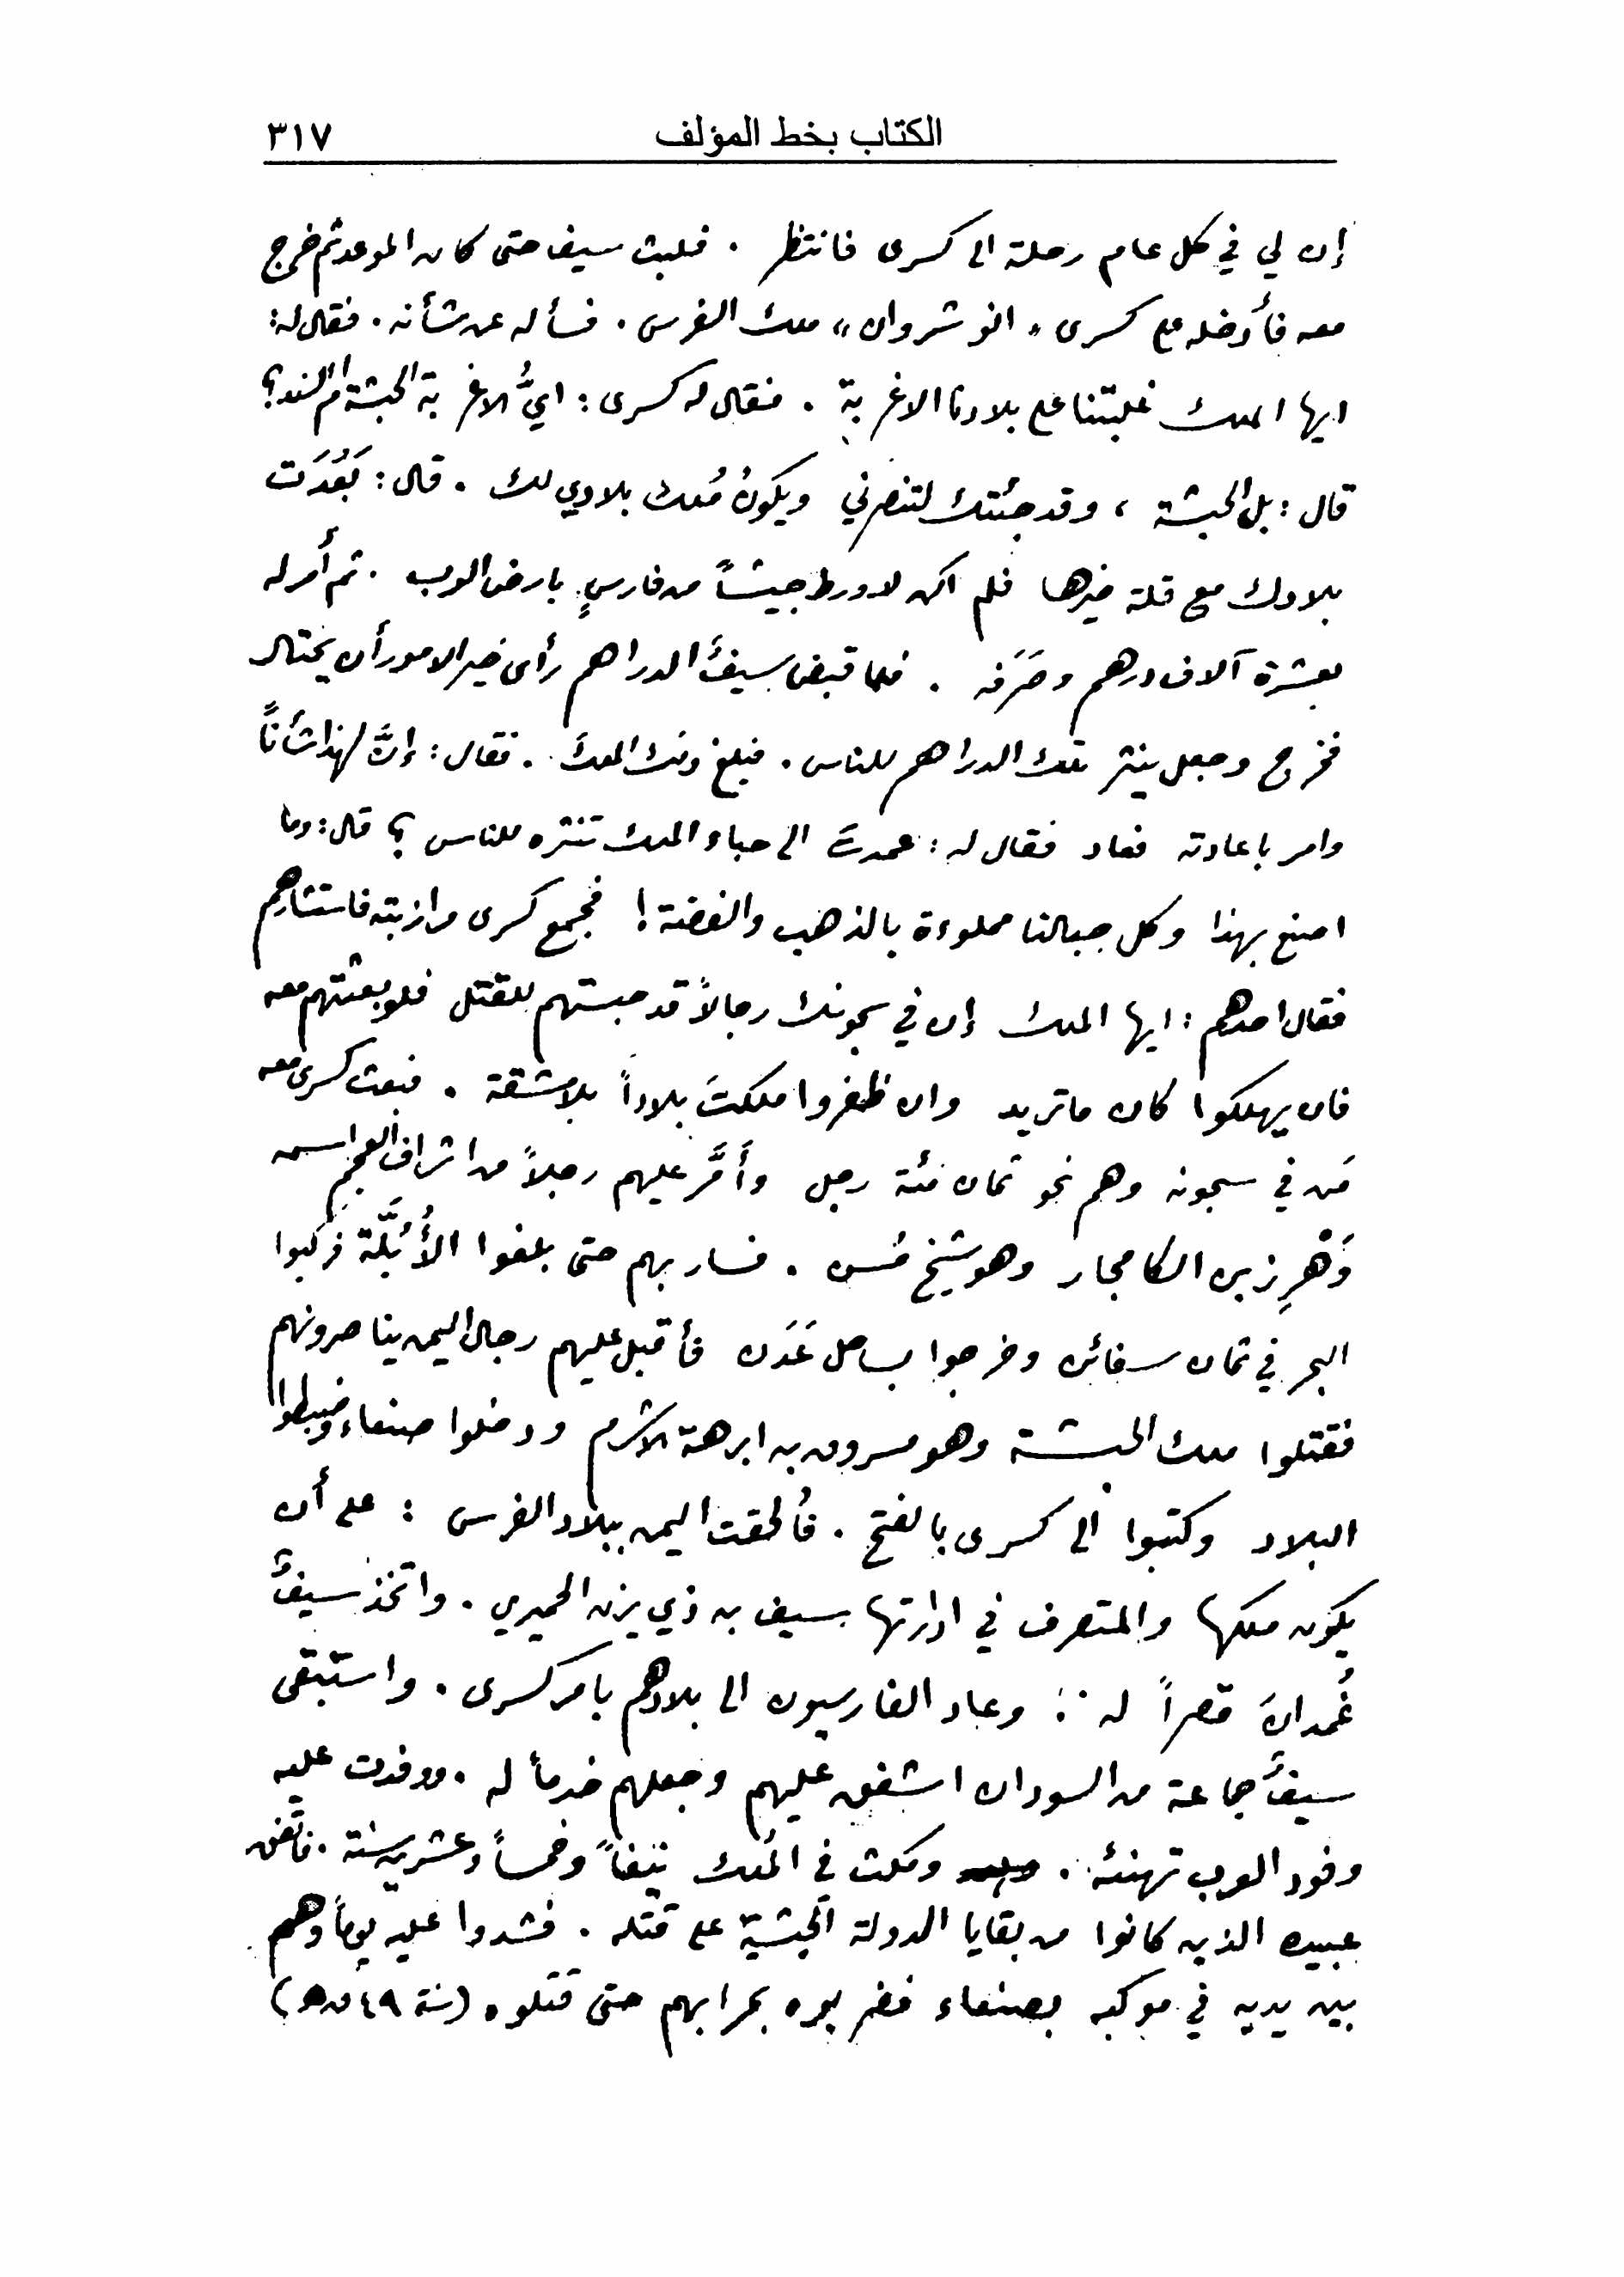 الكتاب بخط المؤلف ٣١٧
إن لي في كل عام رحلة الى كسرى فانتظر . فلبث سيف حتى كان الموعد ثم خرج
معه فأدخله على كسرى « انو شروان » ملك الفرس . فسأله عن شأنه . فقال له :
ايها الملك غلبتنا على بلادنا الاغربة . فقال له كسرى : ايُّ الاغربة الحبشة ام السند ؟
قال : بل الحبشة ، وقد جئتك لتنصرني ويكونُ مُلك بلادي لك . قال : بَعُدَت
بلادك مع قلة خيرها فلم اكن لاورط جيشاً من فارسٍ بارض العرب . ثم أمر له
بعشرة آلاف درهم وصَرَفه . فلما قبض سيفٌ الدراهم رأى خير الامور أن يحتال
فخرج وجعل ينثر تلك الدراهم للناس . فبلغ ذلك الملكَ . فقال : إنَّ لهذا شأناً
وامر باعادته فعاد فقال له : عمدتَ الى حباء الملك تنثره للناس ؟ قال : وما
اصنع بهذا وكل جبالنا مملوءة بالذهب والفضة ! فجمع كسرى مرازبته فاستشارهم
فقال احدهم : ايها الملك إن في سجونك رجالاً قد حبستهم للقتل فلو بعثتهم معه
فان يهلكوا كان ماتريد وان ظفروا ملكتَ بلاداً بلا مشقة . فبعث كسرى معه
مَن في سجونه وهم نحو ثمان مئة رجل وأَمَّر عليهم رجلاً من اشراف العجم اسمه
وَهْرِز بن الكامجار وهو شيخ مُسن . فسار بهم حتى بلغوا الأُبُلَّة فركبوا
البحر في ثمان سفائن وخرجوا بساحل عَدَن فأقبل عليهم رجال اليمن يناصرونهم
فقتلوا ملك الحبشة وهو مسروق بن ابرهة الاشرم ودخلوا صنعاء وضبطوا
البلاد وكتبوا الى كسرى بالفتح . فأُلحقت اليمن ببلاد الفرس : على أن
يكون ملكها والمتصرف في ادارتها سيف بن ذي يزن الحميري . واتخذ سيفٌ
غُمدانَ قصراً له . وعاد الفارسيون الى بلادهم بامر كسرى . واستبقى
سيفٌ جماعة من السودان اشفق عليهم وجعلهم خدماً له . ووفدت عليه
وفود العرب تهنئه . ومكث في المُلك نيّفاً وخمساً وعشرين سنة . فاتفق
عبيده الذين كانوا من بقايا الدولة الحبشيّة على قتله . فشدوا عليه يوماً وهم
بين يديه في موكبه بصنعاء فضربوه بحرابهم حتى قتلوه ( سنة ٤٩ ق ه )